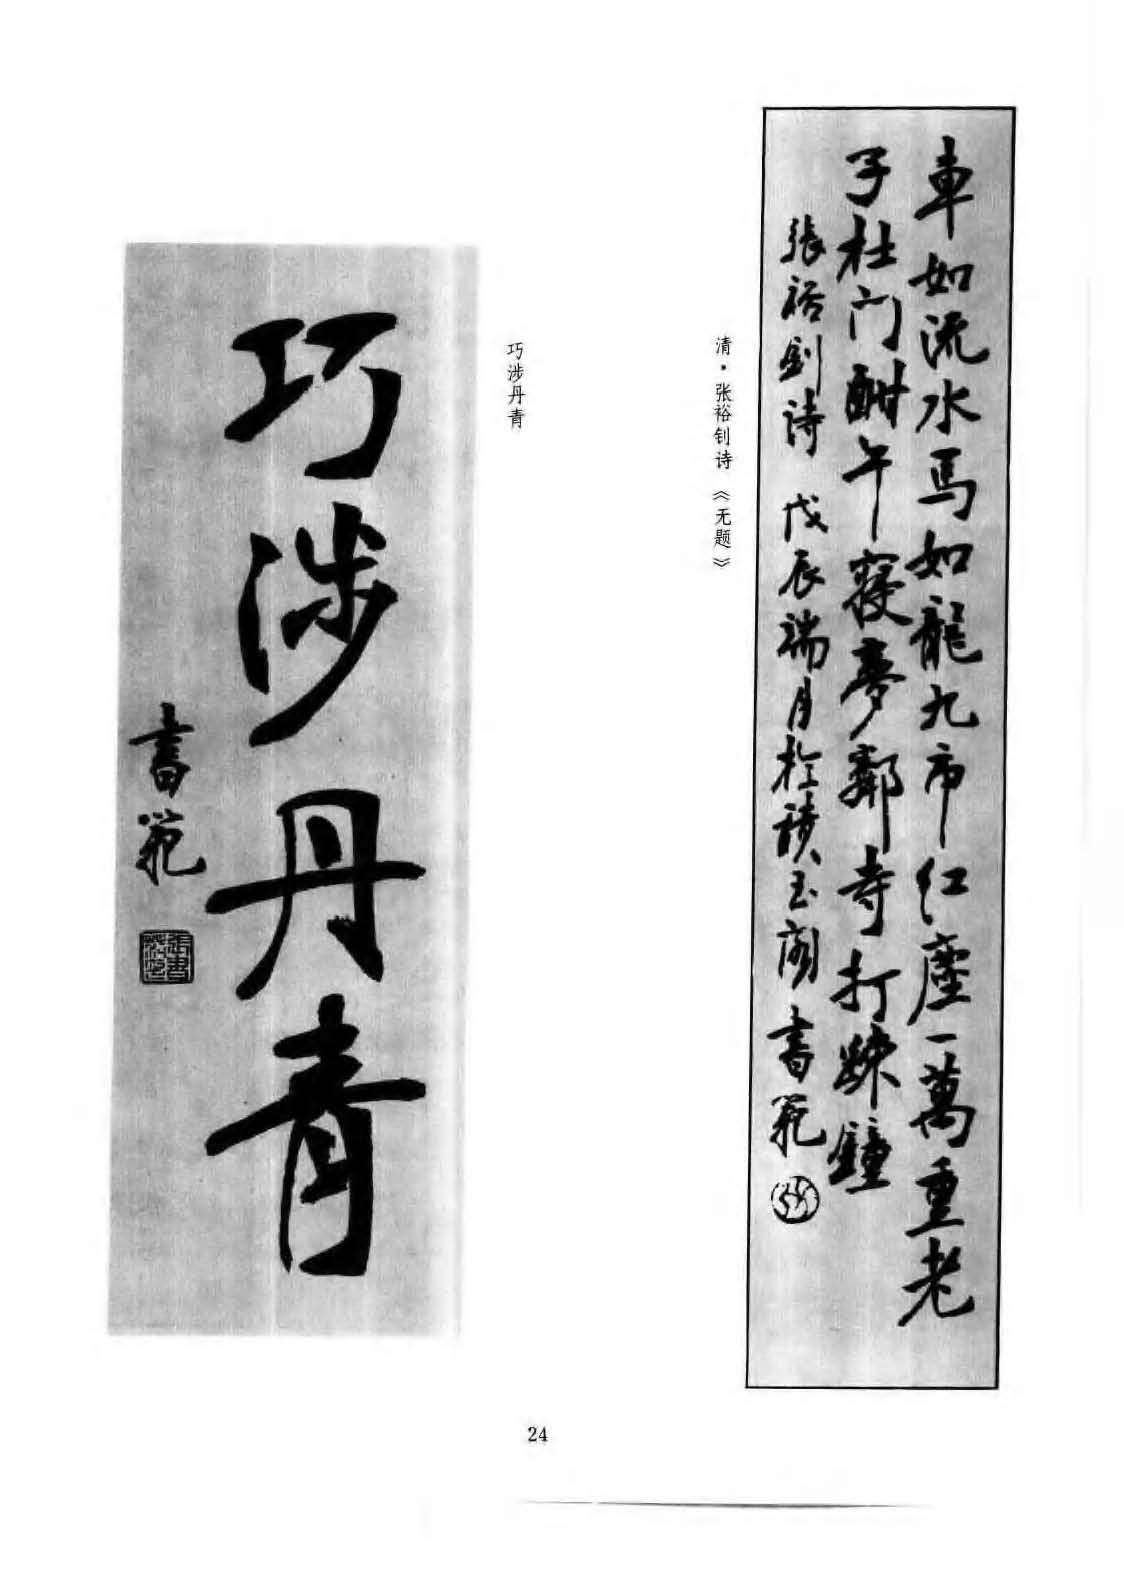 車如流水馬如龍九市红塵一萬重老
子杜门酣午寝夢鄰寺打疎鐘
張裕釗詩 戊辰端月於積玉阁 書範
清·张裕钊诗《无题》
巧涉丹青
巧涉丹青
書範
24